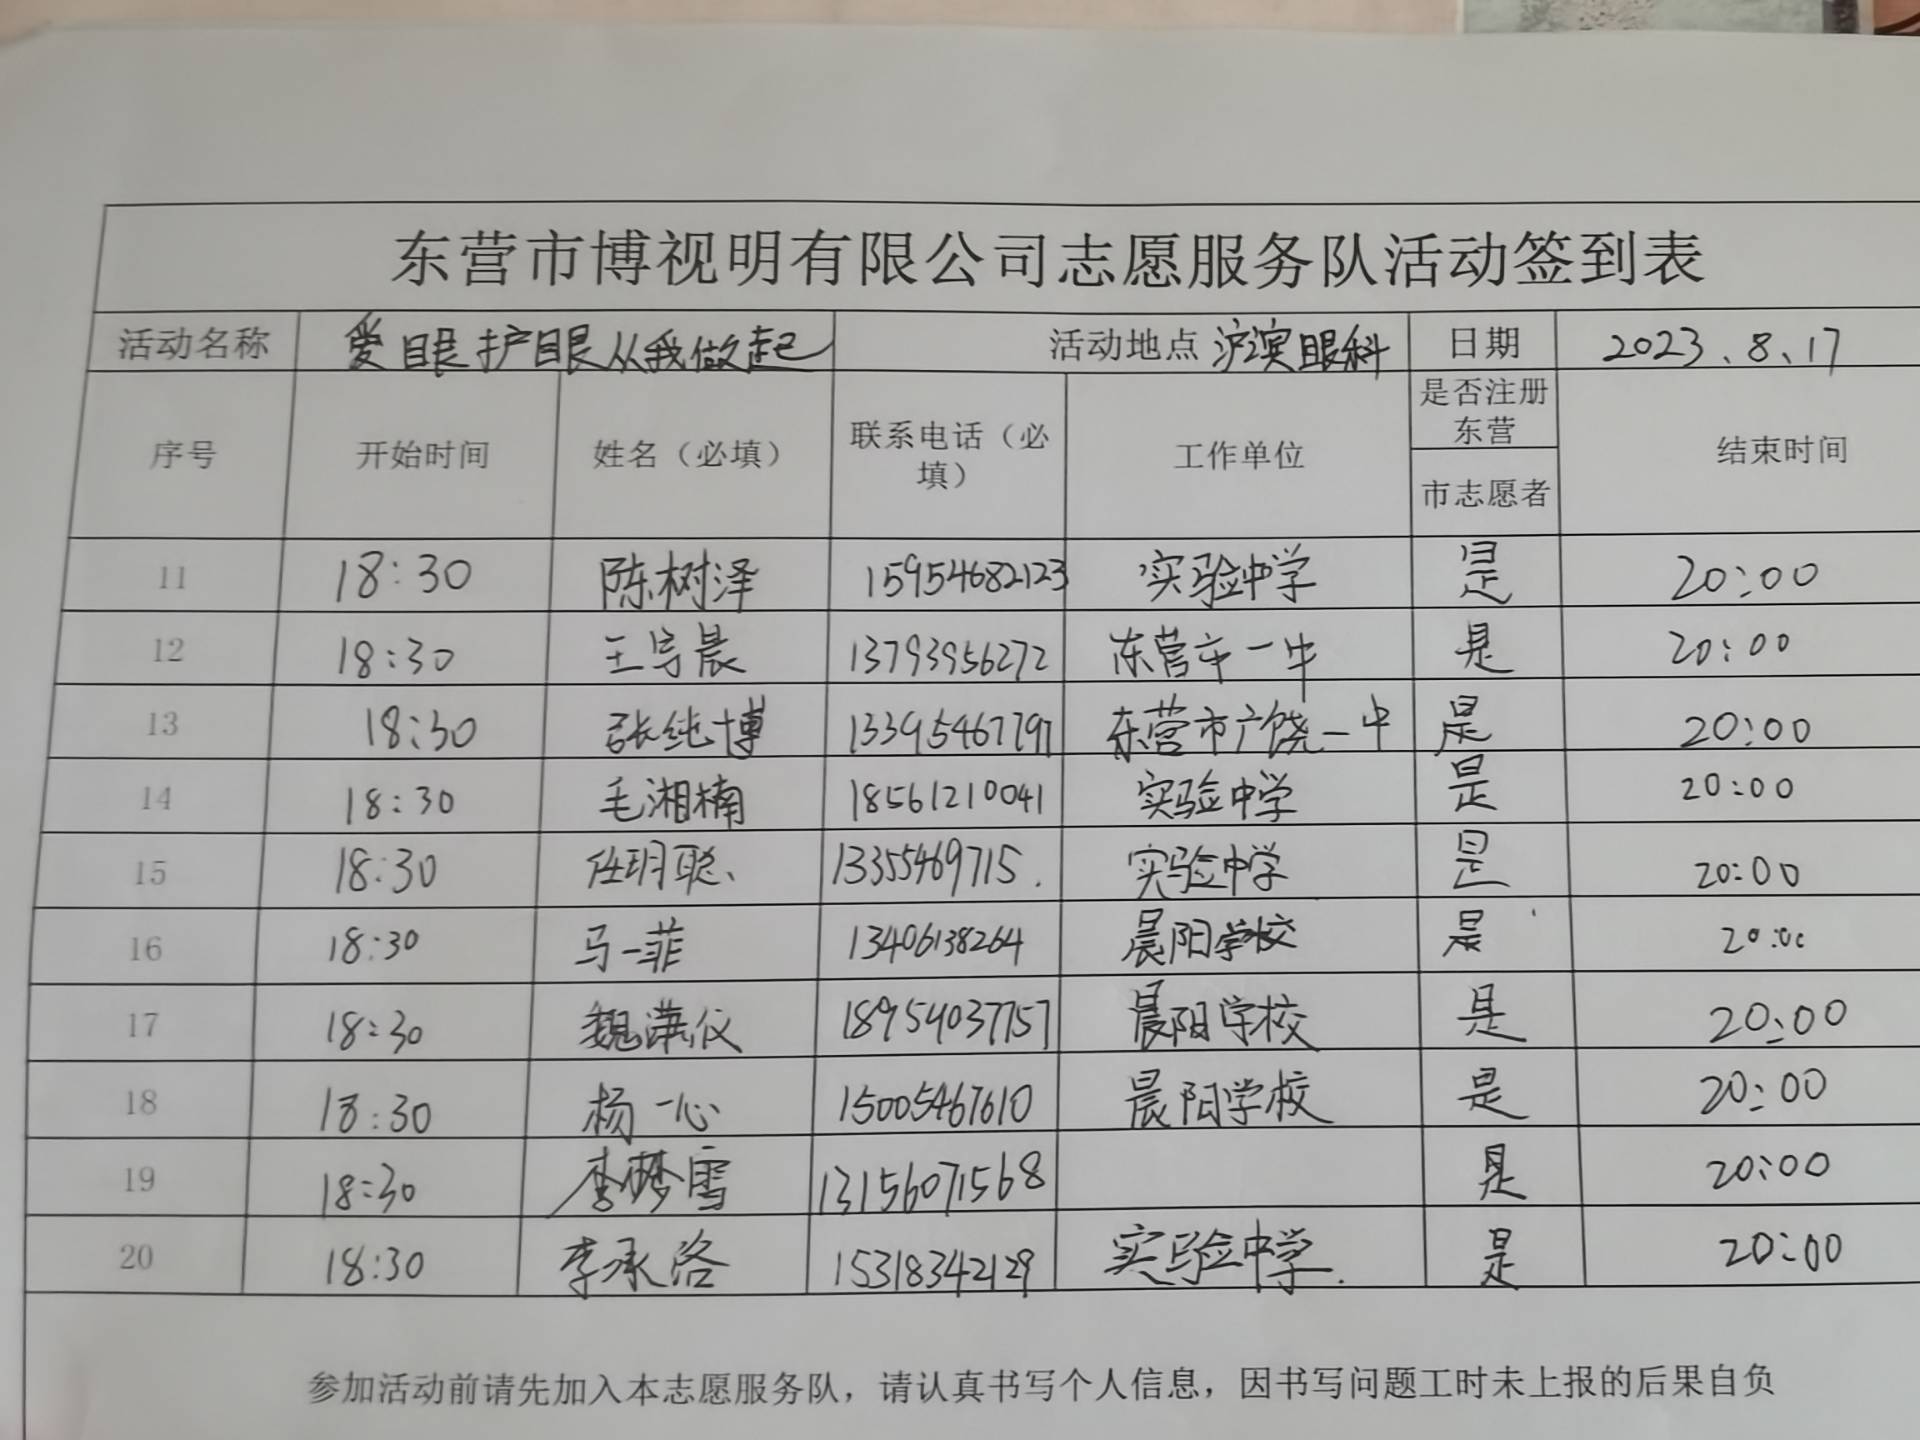 东营市博视明有限公司志愿服务队活动签到表
活动名称 爱眼护眼从我做起 活动地点 沪滨眼科 日期 2023.8.17
序号 开始时间 姓名（必填） 联系电话（必填） 工作单位 是否注册东营市志愿者 结束时间
11 18:30 陈树泽 15954682123 实验中学 是 20:00
12 18:30 王宇晨 13793956272 东营市一中 是 20:00
13 18:30 张纯博 13395467797 东营市广饶一中 是 20:00
14 18:30 毛湘楠 18561210041 实验中学 是 20:00
15 18:30 任玥聪 13355469715. 实验中学 是 20:00
16 18:30 马一菲 13406138264 晨阳学校 是 20:00
17 18:30 魏潇仪 18954037757 晨阳学校 是 20:00
18 18:30 杨一心 15005467610 晨阳学校 是 20:00
19 18:30 李梦雪 13156071568 是 20:00
20 18:30 李承洛 15318342129 实验中学. 是 20:00
参加活动前请先加入本志愿服务队，请认真书写个人信息，因书写问题工时未上报的后果自负